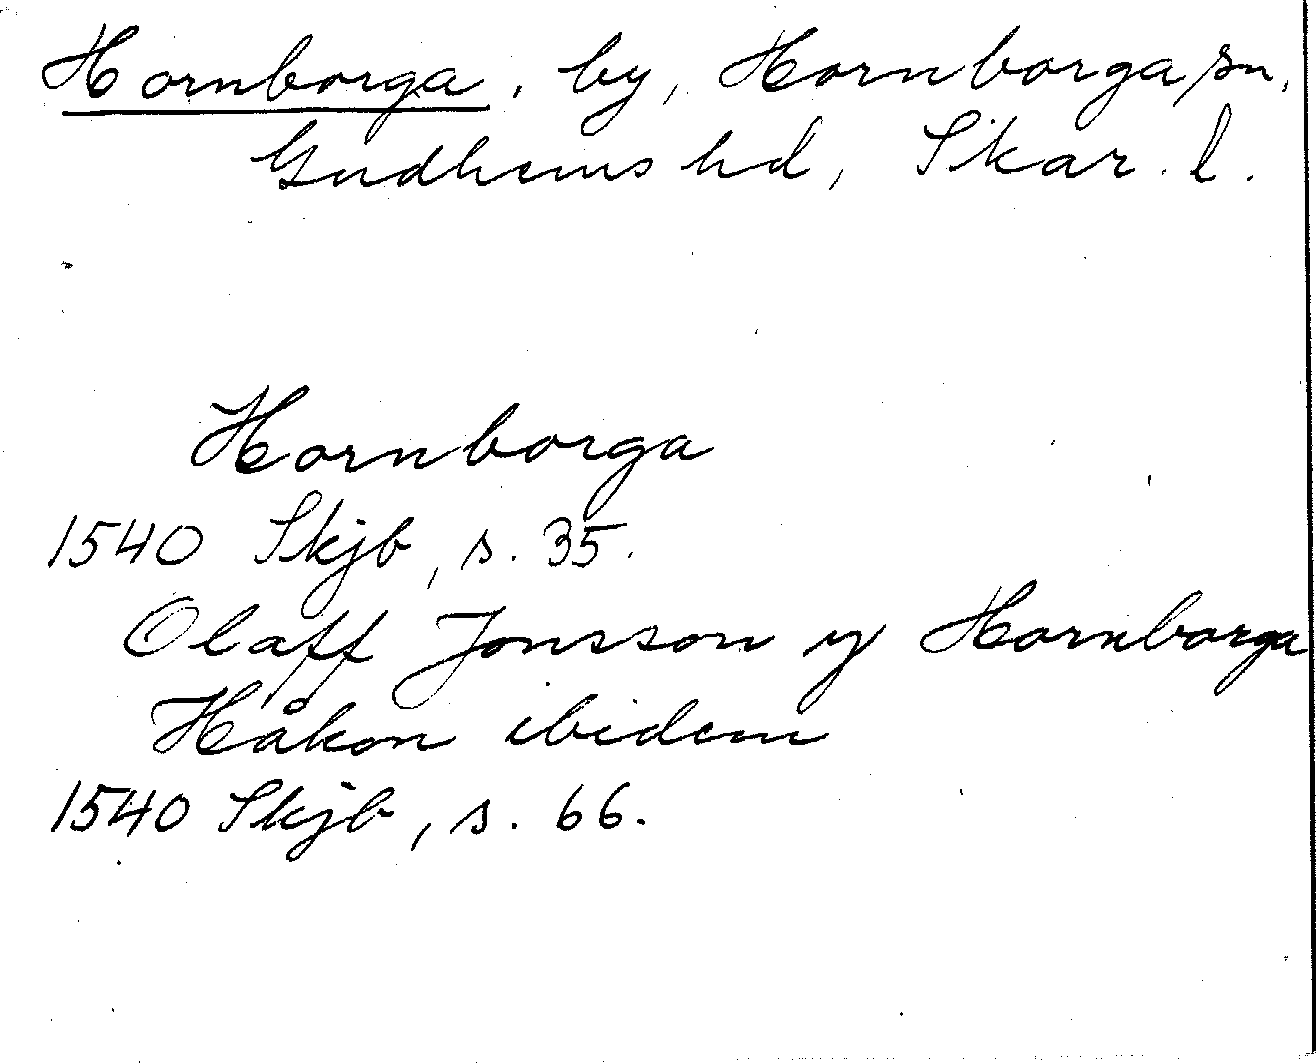 Hornborga, by, Hornborga sn,
Gudhems hd, Skar. l.
Hornborga
1540 Skjb, s. 35.
Olaff Jonsson y Hornborga
Håkon ibidem
1540 Skjb, s. 66.